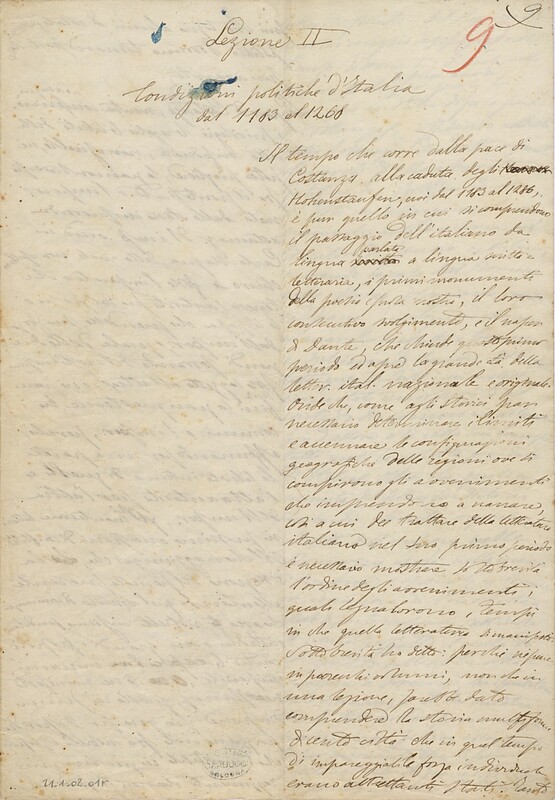 9
9
Lezione II
Condizioni politiche d'Italia
dal 1183 al 1268
Il tempo che corre dalla pace di
Costanza alla caduta degli
Hohenstaufen, cioè dal 1183 al 1268,
è pur quello in cui si comprendono
il passaggio dell'italiano da
parlata
lingua a lingua scritta e
letteraria, i primi monumenti
della poesia e prosa nostra, il loro
consecutivo svolgimento, e il nascer
di Dante, che chiude questo primo
periodo ed apre la grande età della
letter. ital. nazionale e originale.
Onde che, come agli storici par
necessario determinare i limiti
e accennare le configurazioni
geografiche delle regioni ove si
compirono gli avvenimenti
che imprendono a narrare,
così a cui dee trattare della letteratura
italiana nel suo primo periodo
è necessario mostrare sotto brevità
l'ordine degli avvenimenti,
quali segnalarono i tempi
in che quella letteratura
Sotto brevità ho detto: perché nè pure
in parecchi volumi, non che in
una lezione, sarebbe dato
comprendere la storia multiforme
di cento città che in quel tempo
di impareggiabile forza individuale
erano altrettanti stati. Tanto
BOLOGNA